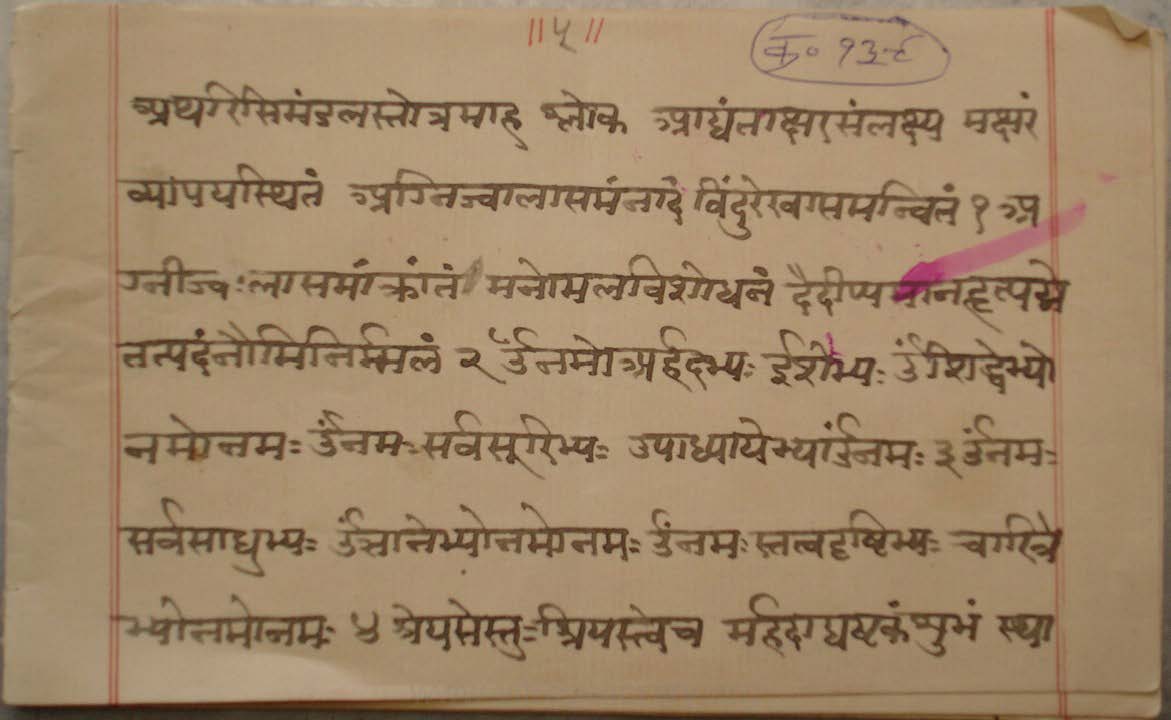 ॥५॥
क्र॰ १३८
अथरिसिमंडलस्तोत्रमाह श्लोक आद्यंताक्षरसंलक्ष्य मक्षरं
व्यांपयस्थितं अग्निज्वालासमंनादं विंदुरेखासमन्वितं १ अ
ग्नीज्वःलासमांक्रांतं मनोमलविशोधनं दैदीप्यमानहृत्पद्मे
तत्पदंनौमिनिर्म्मलं २ उँनमोअर्ईदभ्यः ईशेभ्यः उँशिद्धेभ्यो
नमोनमः उँनमः सर्वसूरिभ्यः उपाध्यायेभ्यांउँनमः ३ उँनमः
सर्वसाधुभ्यः उँज्ञानेभ्योनमोनमः उँनमः स्तत्वदृष्टिभ्यः चारित्रे
भ्योनमोनमः ४ श्रेयसेस्तुःश्रियस्त्वेच मर्हदाद्यष्टकंशुभं स्था